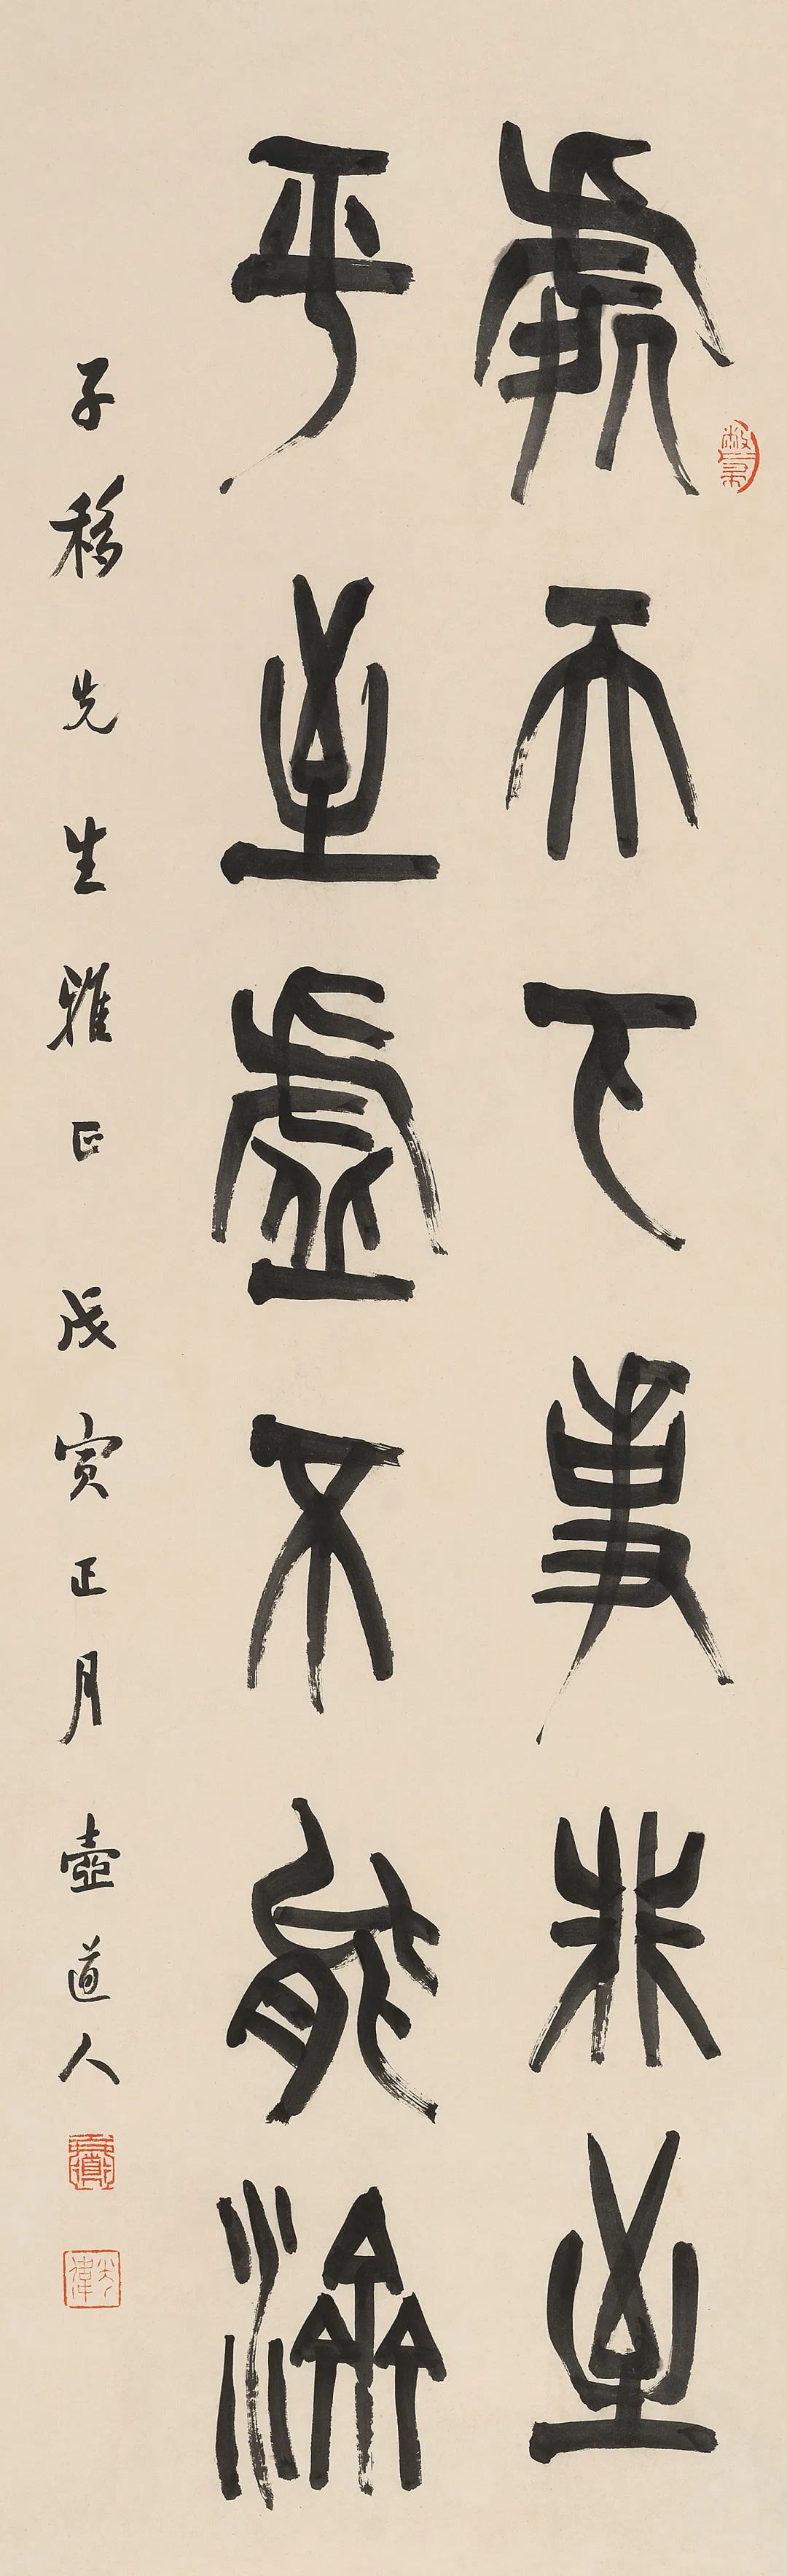 處天下事非至
平至虛不能濟
子移先生雅正戊寅正月壺道人